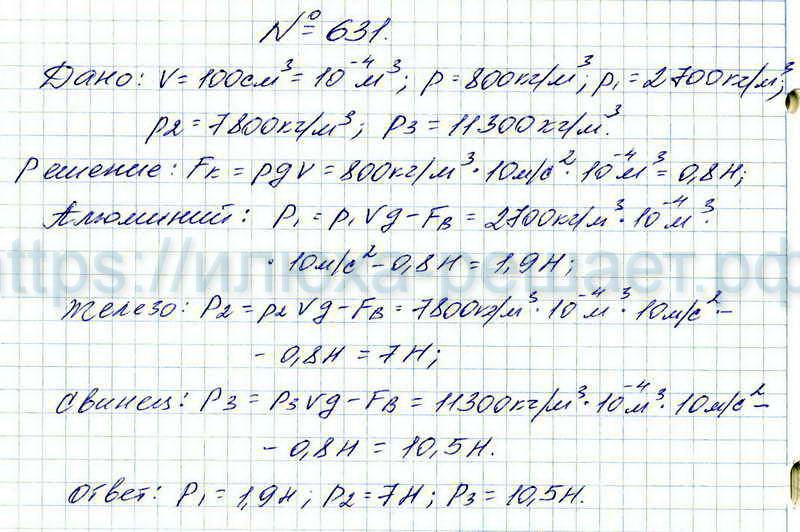 № 631.
Дано: V = 100см³ = 10⁻⁴м³; ρ = 800кг/м³; ρ₁ = 2700кг/м³;
ρ₂ = 7800кг/м³; ρ₃ = 11300кг/м³.
Решение: Fв = ρgV = 800кг/м³ · 10м/с² · 10⁻⁴м³ = 0,8Н;
Алюминий: P₁ = ρ₁Vg – Fв = 2700кг/м³ · 10⁻⁴м³ ·
· 10м/с² – 0,8Н = 1,9Н;
https://илюха-решает.рф
Железо: P₂ = ρ₂Vg – Fв = 7800кг/м³ · 10⁻⁴м³ · 10м/с² –
– 0,8Н = 7Н;
Свинец: P₃ = ρ₃Vg – Fв = 11300кг/м³ · 10⁻⁴м³ · 10м/с² –
– 0,8Н = 10,5Н.
Ответ: P₁ = 1,9Н; P₂ = 7Н; P₃ = 10,5Н.